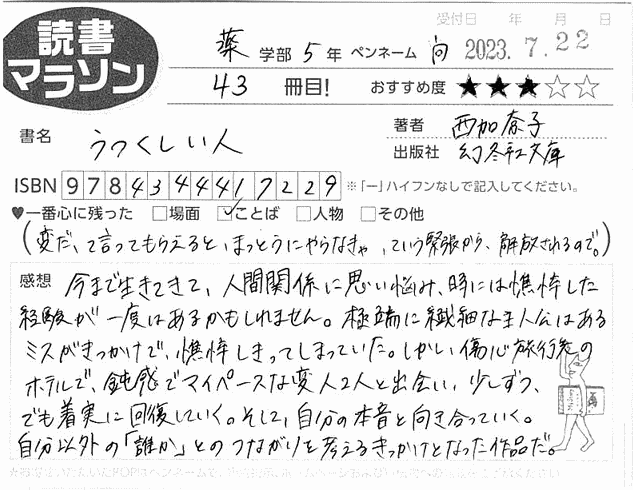 読書
マラソン
受付日 年 月 日
薬 学部 5 年 ペンネーム 向 2023.7.22
43 冊目! おすすめ度 ★★★☆☆
書名 うつくしい人
著者 西加奈子
出版社 幻冬社文庫
ISBN 9784344417229 ※「ー」ハイフンなしで記入してください。
♥一番心に残った □場面 ☑ことば □人物 □その他
(変だ、って言ってもらえると、まっとうにやらなきゃ、ていう緊張から、解放されるので。)
感想 今まで生きてきて、人間関係に思い悩み、時には憔悴した
経験が一度はあるかもしれません。極端に繊細な主人公はある
ミスがきっかけで、憔悴しきってしまっていた。しかし傷心旅行先の
ホテルで、鈍感でマイペースな変人2人と出会い、少しずつ、
でも着実に回復していく。そして、自分の本音と向き合っていく。
自分以外の「誰か」とのつながりを考えるきっかけとなった作品だ。